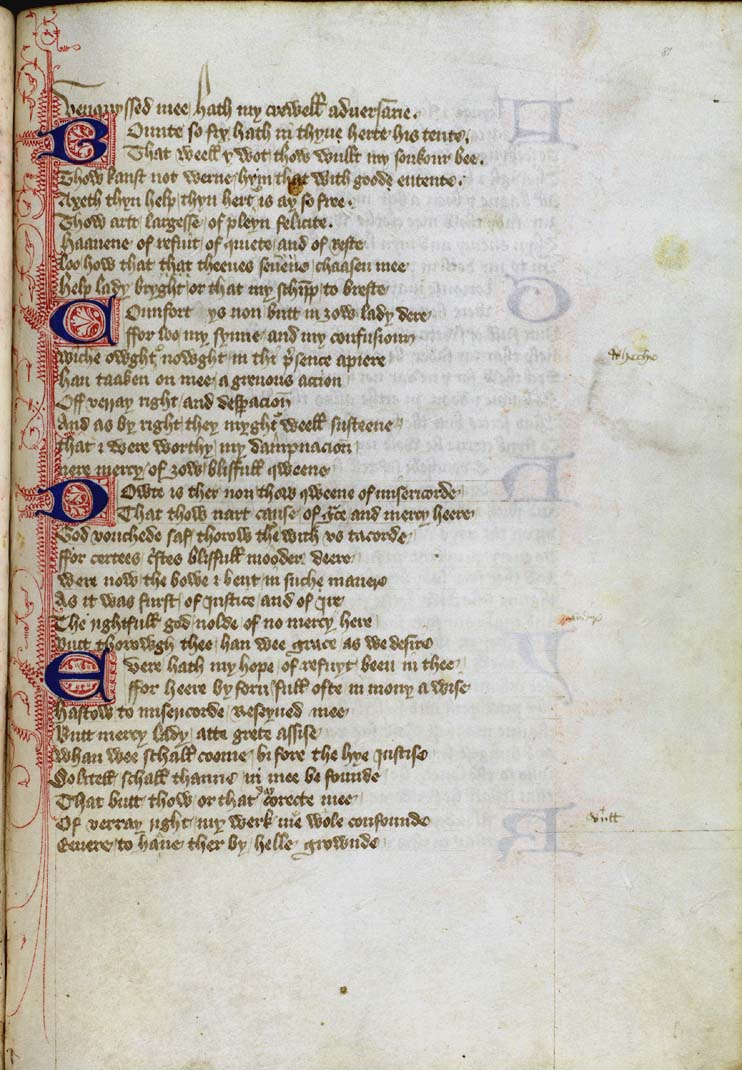 81
Venquyssed mee hath my crewell adversarie.
Bounte so fix hath in thyne herte his tente.
That weell y wot thow wullt my soukour bee.
Thow kanst not werne hym that with goode entente.
Axeth thyn help thyn hert is ay so free.
Thow artt largesse of pleyn felicite.
Haavene of refuit of quiete and of reste
Loo how that that theeves sevene chaasen mee
Help lady bryght or that my schipp to breste
Counfort ys non butt in zow lady dere
ffor loo my synne and my confusioun
Wiche owght nowght in thi presence apiere
han taaben on mee a grevous accion
Off verray right and desspacioun
And as by right they myght weell susteene
That I were worthy my dampnacion
Nere mercy of zow blisfull qweene
Dowte is ther non thow qweene of misericorde
That thow nart cause of grace and mercy heere
God vouchede saf thorow the with us tacorde
ffor certees cristes blisfull mooder deere
Were now the bowe I bent in suche manere
As it was furst of justice and of ire
The rightfull god nolde of no mercy here
Butt thorowgh thee han wee grace as we desire
Evere hath my hope of refuyt been in thee
ffor heere by forn full ofte in mony a wise
hastow to misericorde Reseyved mee
Butt mercy lady atte grete assise
Whan wee schall coome bifore the hye justise
So litell schall thanne in mee be founde
That butt thow or that correcte mee
Of verray right my werk me wole confounde
Evere to have ther by helle grownde